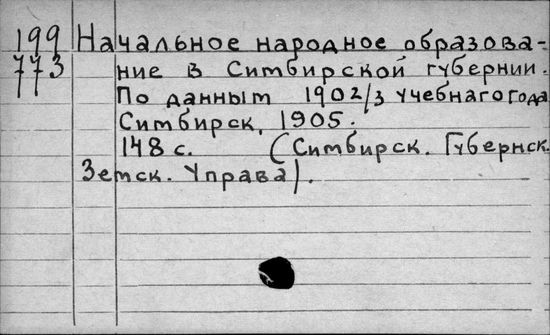 199 Начальное народное образова-
773 ние в Симбирской губернии.
По данным 1902/3 учебнаго года
Симбирск, 1905.
148 с. (Симбирск. Губернск.
Земск. Управа).